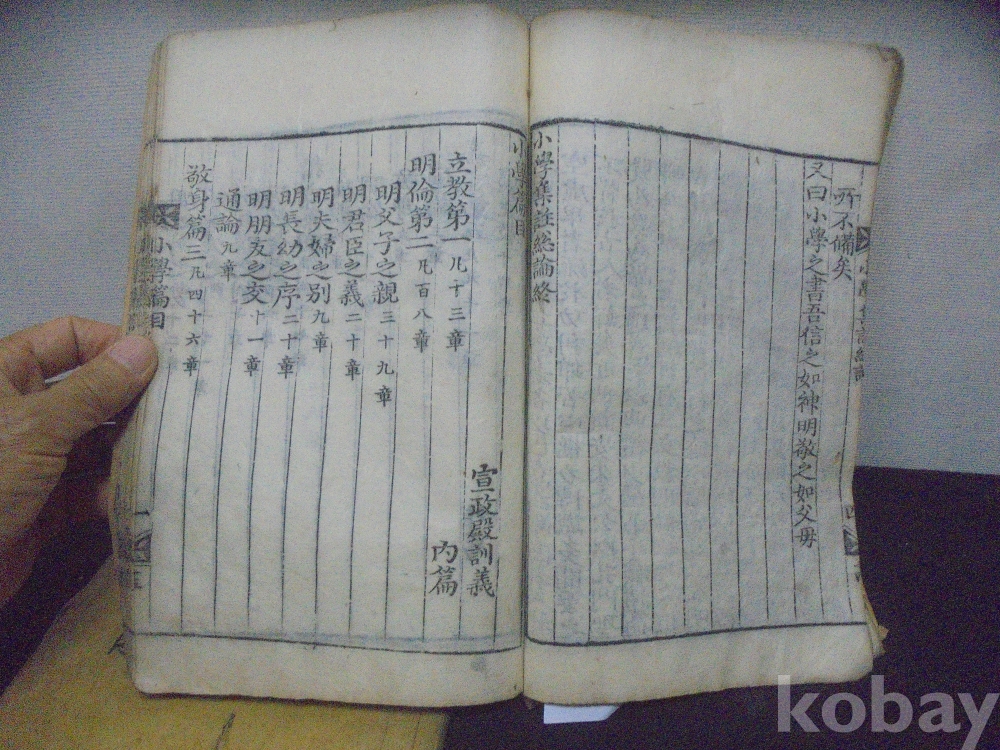 所不備矣
又曰小學之書吾信之如神明敬之如父母
小學集註總論終
小學篇目
宣政殿訓義
立教第一凡十三章
內篇
明倫第二凡百八章
明父子之親三十九章
明君臣之義二十章
明夫婦之別九章
明長幼之序二十章
明朋友之交十一章
通論九章
敬身篇三凡四十六章
小學篇目
kobay